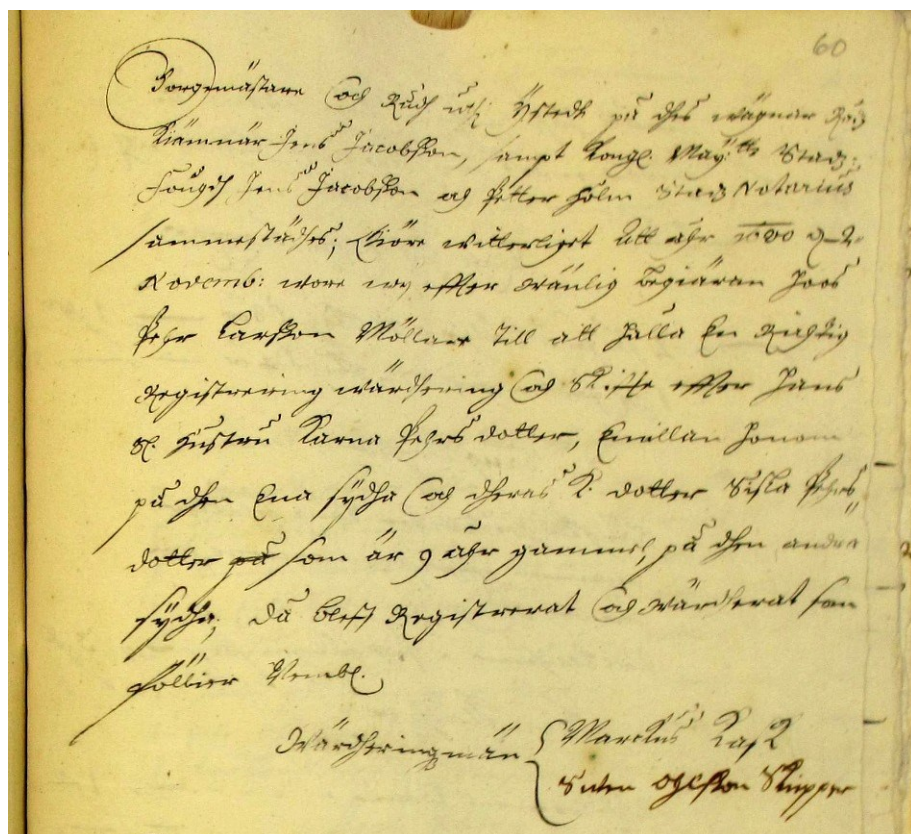 60
Borgemästare och Rådh uthi Ÿstedh på dhes wägnar Rådz
Kiämnär Jens Jacobsson, sampt Kongl: May:ttz Stadz:
Fougdh Jens Jacobsson och Petter Holm Stadz Notarius
sammestädhes; Giöre witterliget att åhr 1680 d 2
Novemb: wore wij effter wänlig begiäran hoos
Pehr Larsson Möllare till att hålla En Richtig
Registrering wärdhering och Skiffte effter hans
Sl. Hustru Karna Pehrs dotter, Emillan honom
på dhen Ena sÿdha och dheras K. dotter Sisla Pehrs
dotter på som är 9 åhr gammel, på dhen andra
sÿdha; Då bleff Registrerat och wärdherat som
föllier Nembl.
Wärdheringzmän Marckus Kask
Swen Ohlsson Skepper